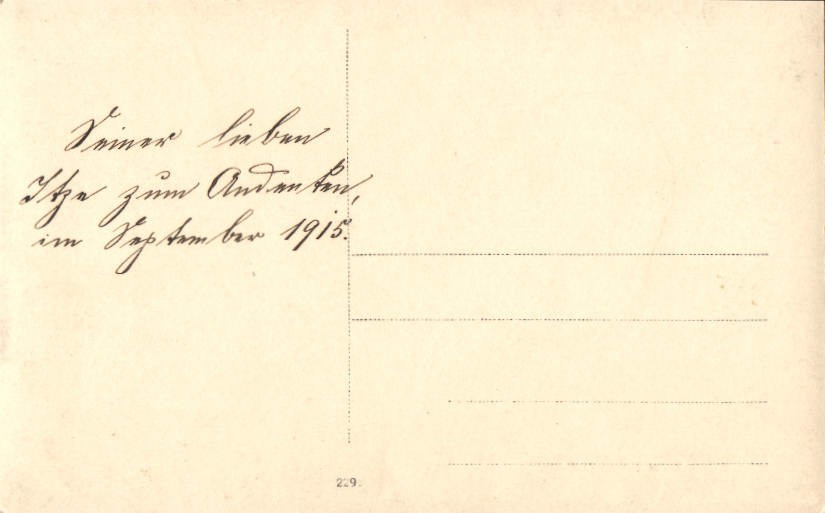 Seiner lieben
Itze zum Andenken,
im September 1915.
229.